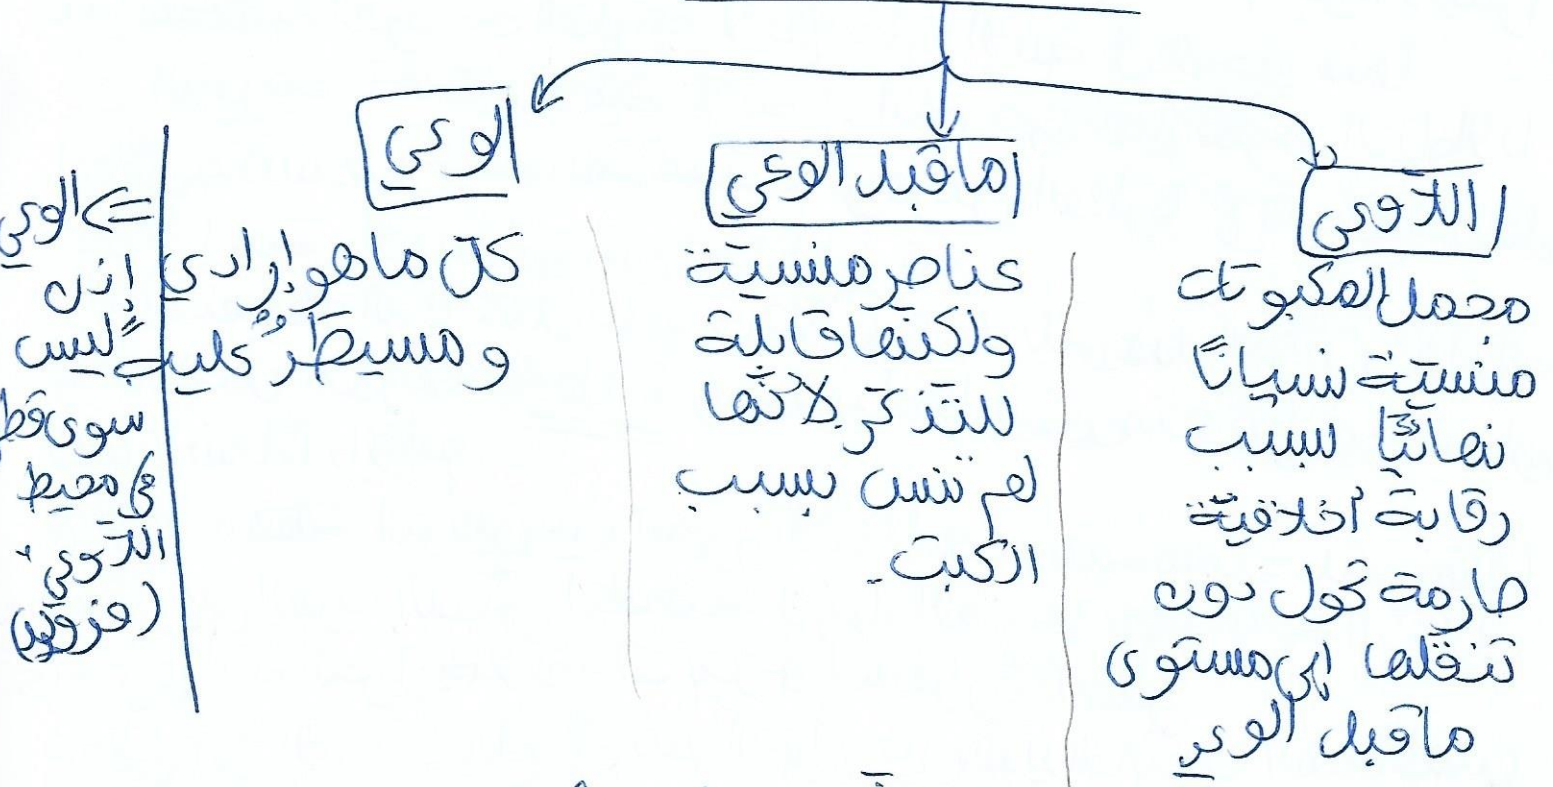 اللاوعي
مجمل المكبوتات
منسيّة نسيانًا
نهائيًّا بسبب
رقابة أخلاقيّة
صارمة تحول دون
تنقلها إلى مستوى
ما قبل الوعي
ما قبل الوعي
عناصر منسيّة
ولكنّها قابلة
للتذكّر لأنّها
لم تنس بسبب
الكبت.
الوعي
كلّ ما هو إرادي
و مسيطَرٌ عليه
=> الوعي
إذن
ليس
سوى
في محيط
اللاّوعي.
(فرويد)